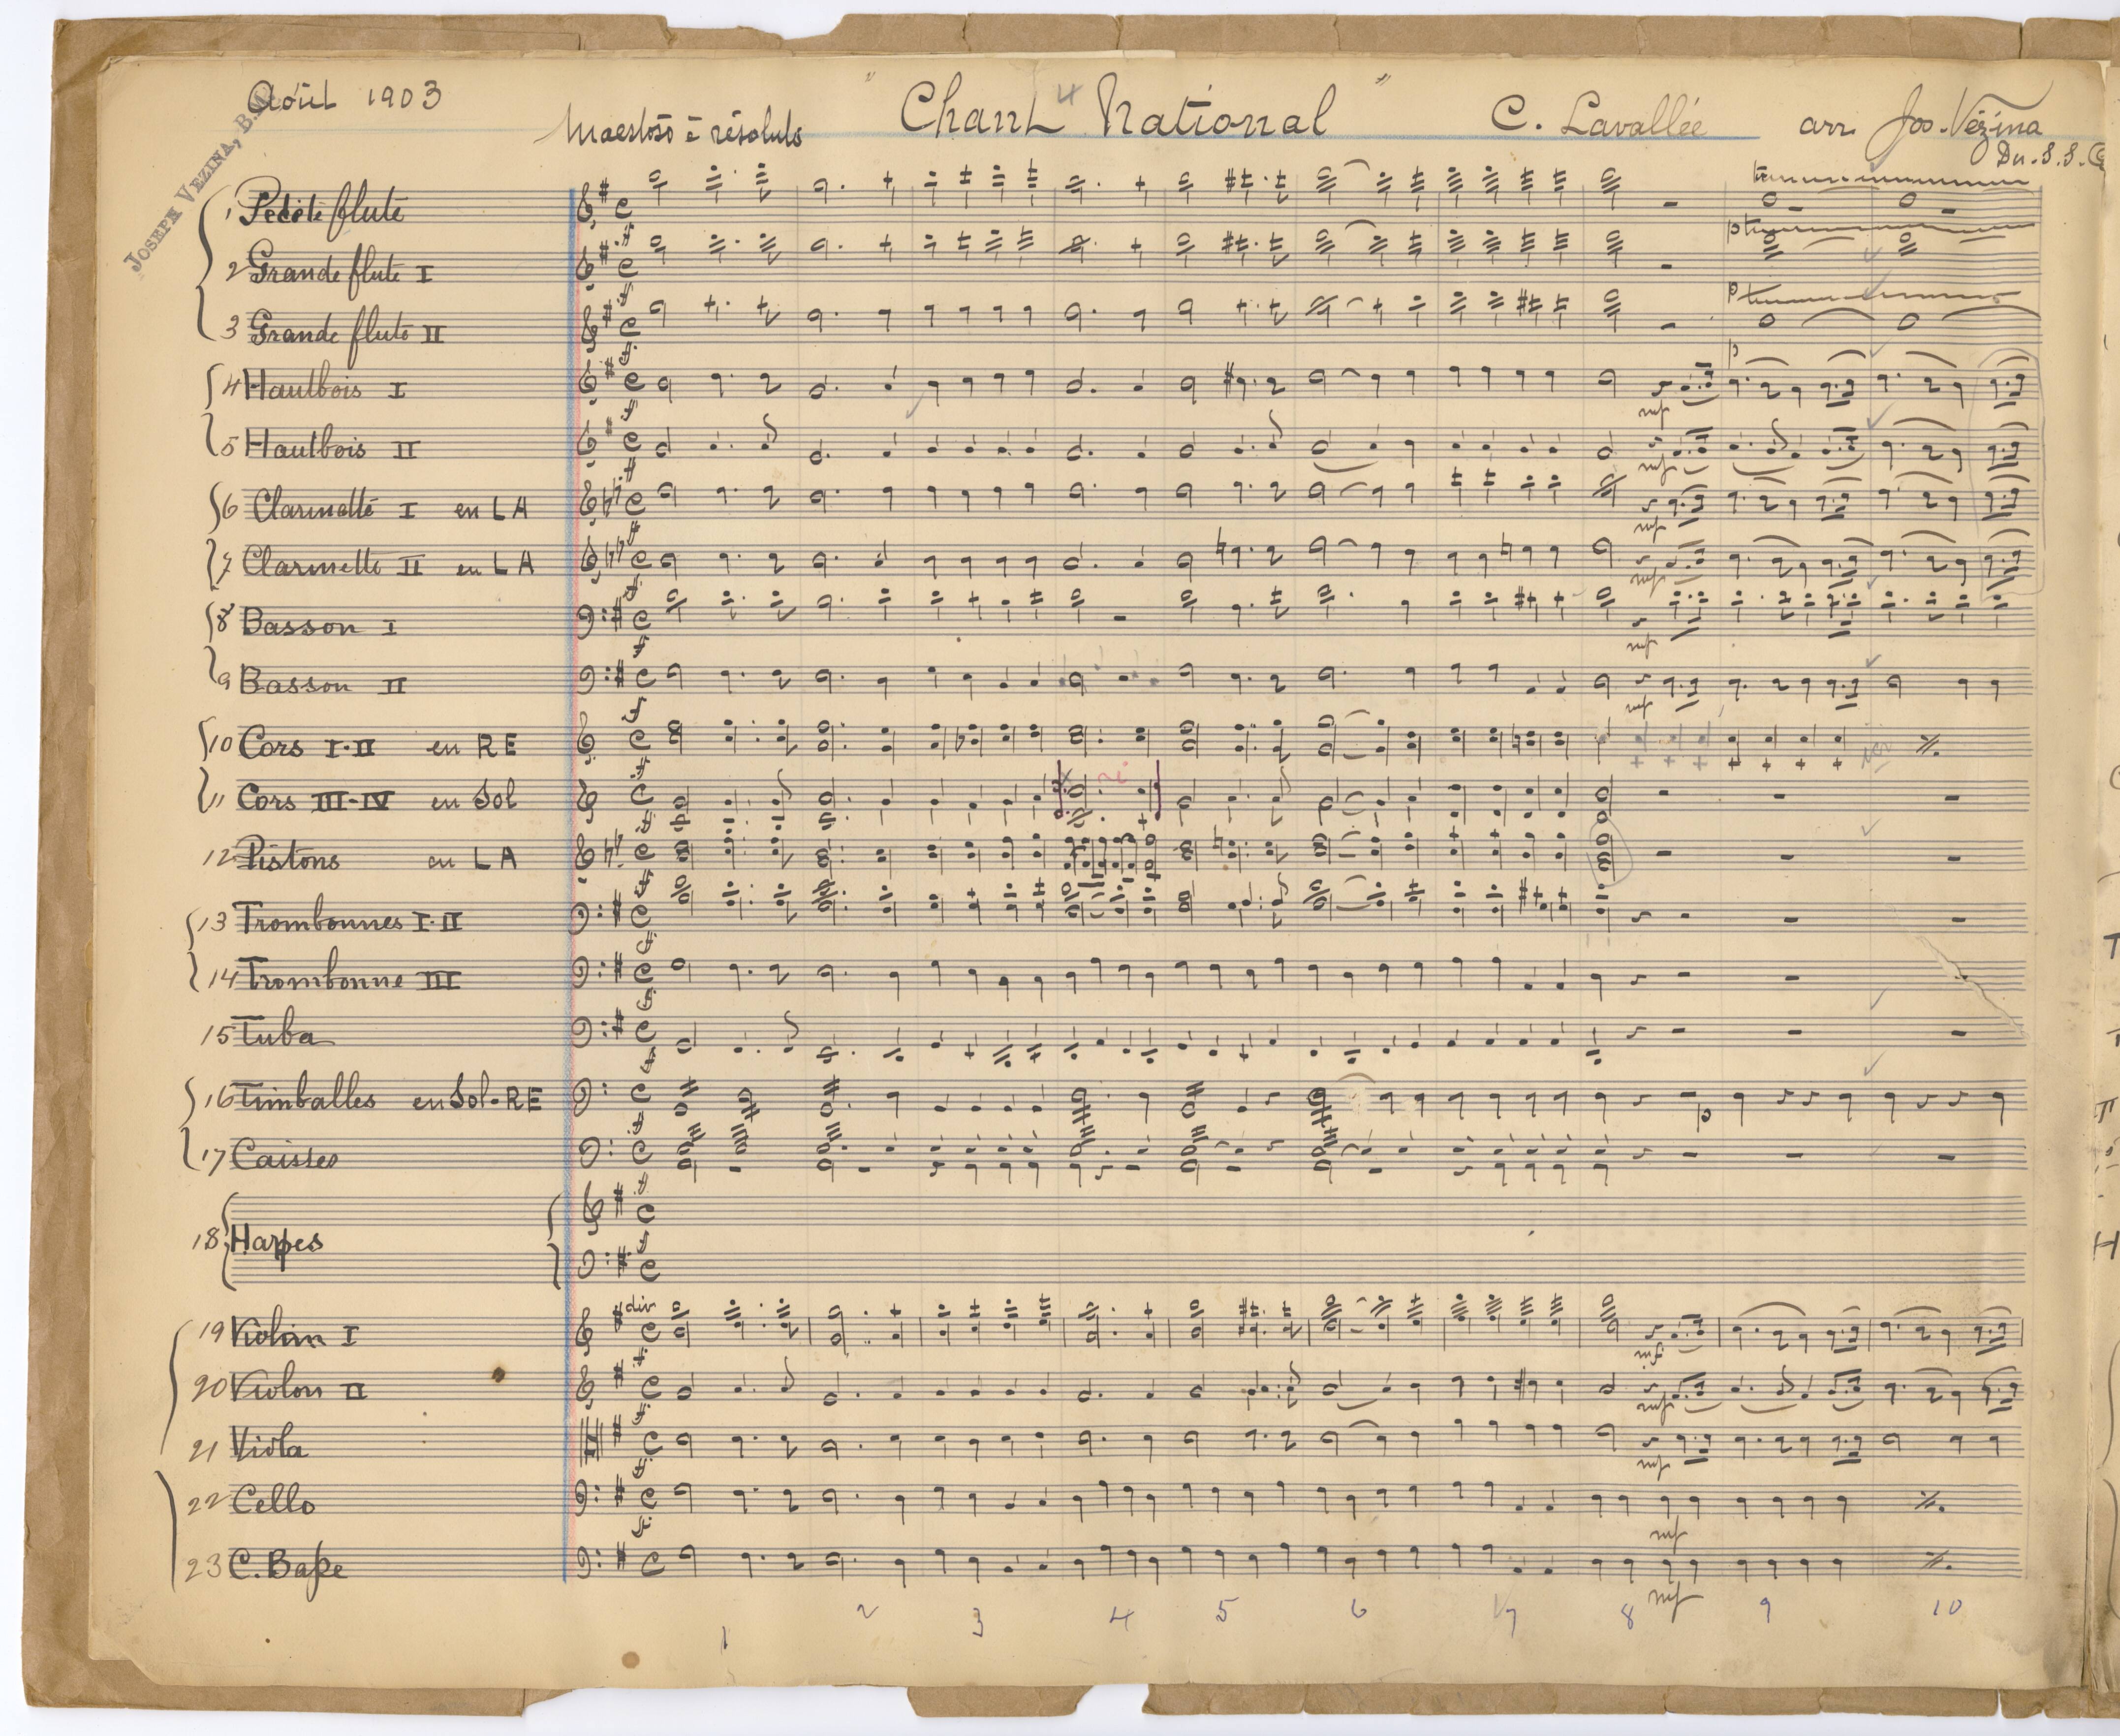 Août 1903
"Chant National"
C. Lavallée arr. Jos. Vézina
JOSEPH VEZINA, B.M.
Maestoso è résoluto
Dir. S. S.
1 Petite flute
2 Grande flute I
3 Grande flute II
4 Hautbois I
5 Hautbois II
6 Clarinette I en LA
7 Clarinette II en LA
8 Basson I
9 Basson II
10 Cors I-II en RE
11 Cors III-IV en Sol
12 Pistons en LA
13 Trombonnes I-II
14 Trombonne III
15 Tuba
16 Timballes en Sol-RE
17 Caisses
18 Harpes
19 Violin I
div
20 Violon II
21 Viola
22 Cello
23 C. Baſse
1 2 3 4 5 6 7 8 9 10